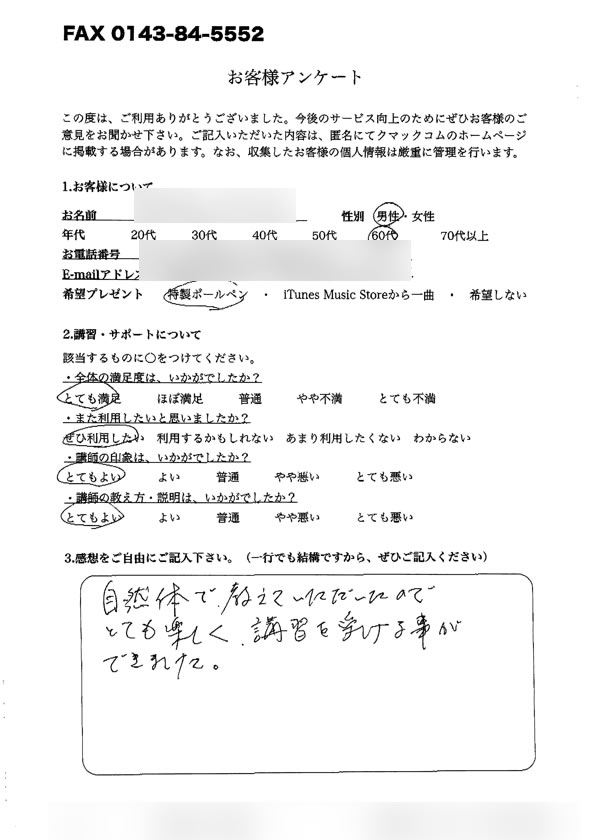 FAX 0143-84-5552
お客様アンケート
この度は、ご利用ありがとうございました。今後のサービス向上のためにぜひお客様のご
意見をお聞かせ下さい。ご記入いただいた内容は、匿名にてクマックコムのホームページ
に掲載する場合があります。なお、収集したお客様の個人情報は厳重に管理を行います。
1.お客様について
お名前 性別 男性・女性
年代 20代 30代 40代 50代 60代 70代以上
お電話番号
E-mailアドレス
希望プレゼント 特製ボールペン ・ iTunes Music Storeから一曲 ・ 希望しない
2.講習・サポートについて
該当するものに○をつけてください。
・全体の満足度は、いかがでしたか？
とても満足 ほぼ満足 普通 やや不満 とても不満
・また利用したいと思いましたか？
ぜひ利用したい 利用するかもしれない あまり利用したくない わからない
・講師の印象は、いかがでしたか？
とてもよい よい 普通 やや悪い とても悪い
・講師の教え方・説明は、いかがでしたか？
とてもよい よい 普通 やや悪い とても悪い
3.感想をご自由にご記入下さい。（一行でも結構ですから、ぜひご記入ください）
自然体で、教えていただいたので
とても楽しく、講習を受ける事が
できました。